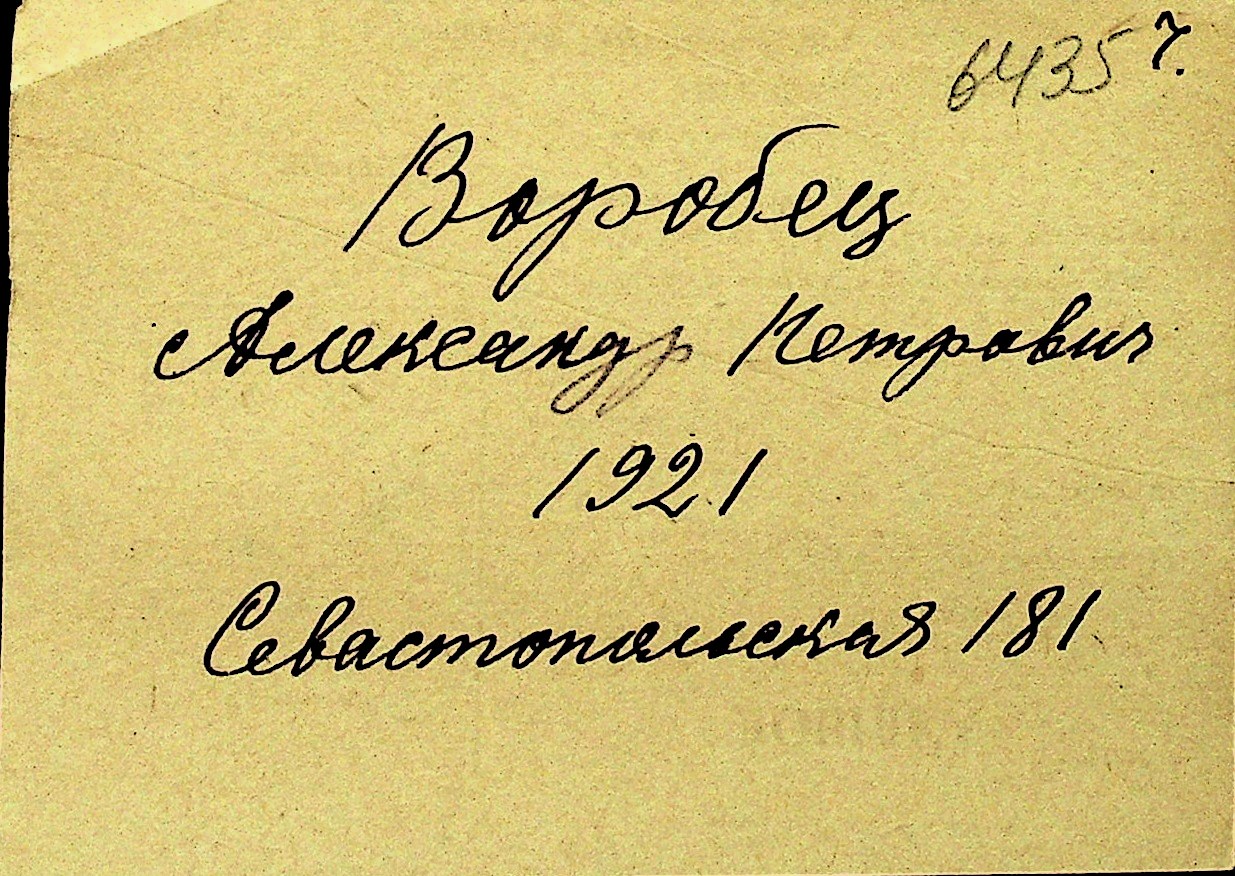 6435 ч.
Воробец
Александр Петрович
1921
Севастопольская 181